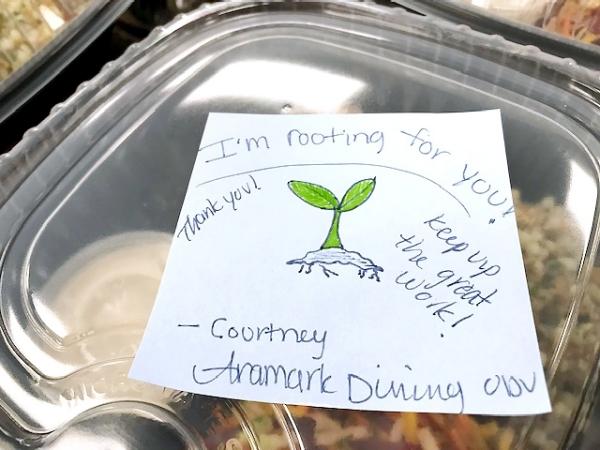 I'm rooting for you!
Thank you!
Keep up
the great
work!
- Courtney
Aramark Dining ODU